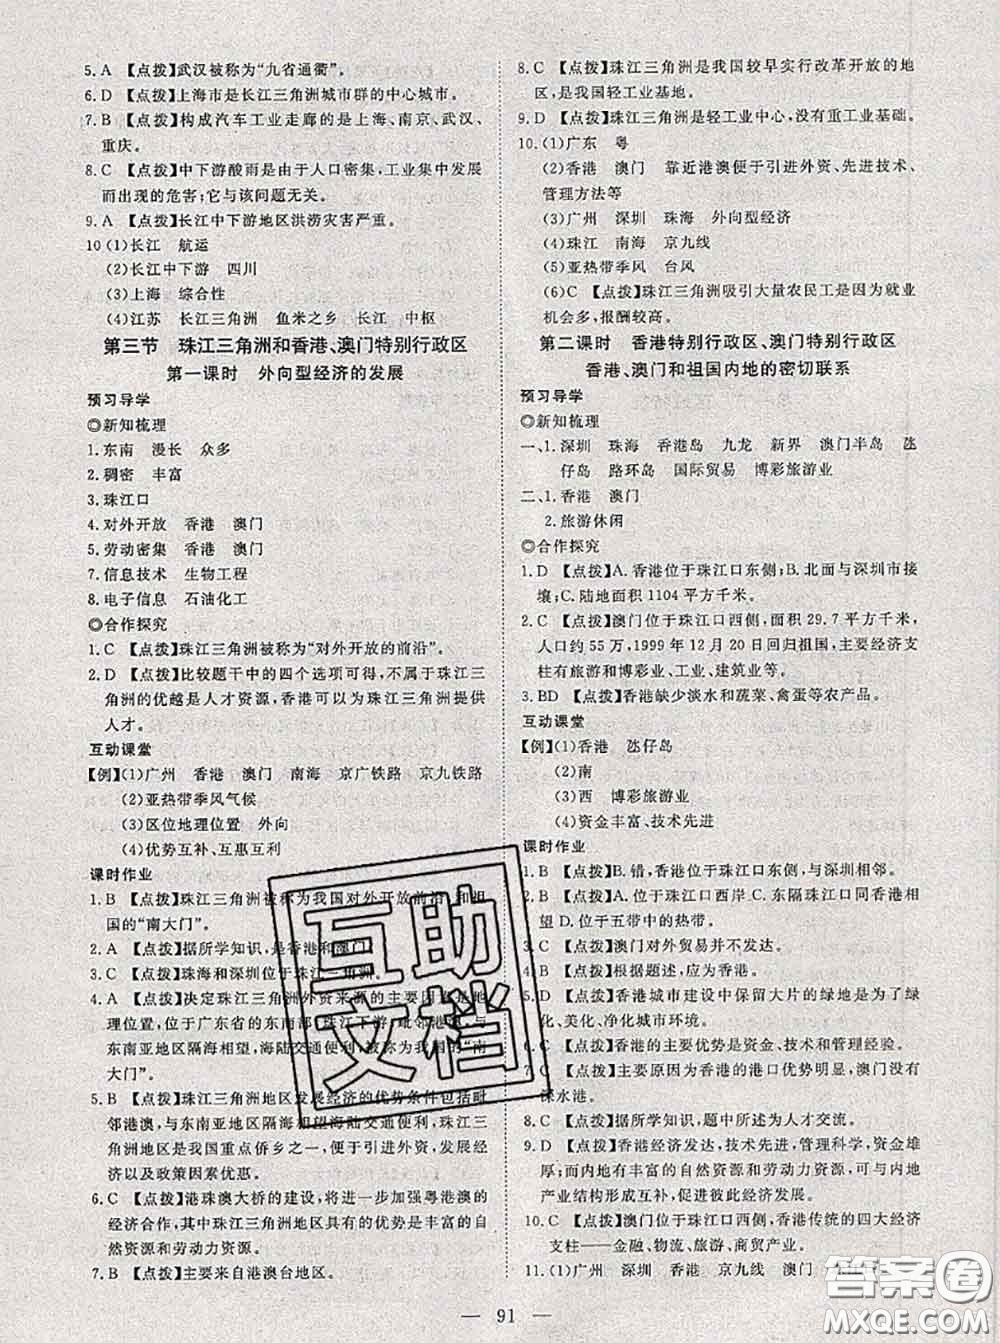 5. A 【点拨】武汉被称为“九省通衢”。
6. D 【点拨】上海市是长江三角洲城市群的中心城市。
7. B 【点拨】构成汽车工业走廊的是上海、南京、武汉、
重庆。
8. C 【点拨】中下游酸雨是由于人口密集,工业集中发展
而出现的危害;它与该问题无关。
9. A 【点拨】长江中下游地区洪涝灾害严重。
10 (1)长江 航运
(2)长江中下游 四川
(3)上海 综合性
(4)江苏 长江三角洲 鱼米之乡 长江 中枢
第三节 珠江三角洲和香港、澳门特别行政区
第一课时 外向型经济的发展
预习导学
◎新知梳理
1. 东南 漫长 众多
2. 稠密 丰富
3. 珠江口
4. 对外开放 香港 澳门
5. 劳动密集 香港 澳门
7. 信息技术 生物工程
8. 电子信息 石油化工
◎合作探究
1. C 【点拨】珠江三角洲被称为“对外开放的前沿”。
2. D 【点拨】比较题干中的四个选项可得:珠江三
角洲的优越是人才资源,香港可以为珠江三角洲提供
人才。
互动课堂
【例】(1)广州 香港 澳门 南海 京广铁路 京九铁路
(2)亚热带季风气候
(3)区位地理位置 外向
(4)优势互补、互惠互利
课时作业
1. B 【点拨】珠江三角洲被称为我国对外开放的前沿和祖
国的“南大门”。
2. A 【点拨】据所学知识,是香港和澳门。
3. C 【点拨】珠海和深圳位于珠江三角洲。
4. A 【点拨】决定珠江三角洲外资来源的主要因素是地
理位置,位于广东省的东南部,珠江下游,毗邻港澳,与
东南亚地区隔海相望,海陆交通便利,被称为我国的“南
大门”。
5. B 【点拨】珠江三角洲地区发展经济的优势条件包括毗
邻港澳,与东南亚地区隔海相望海陆交通便利,珠江三
角洲地区是我国重点侨乡之一,便于引进外资,发展经
济以及政策因素优惠。
6. C 【点拨】港珠澳大桥的建设,将进一步加强粤港澳的
经济合作,其中珠江三角洲地区具有的优势是丰富的自
然资源和劳动力资源。
7. B 【点拨】主要来自港澳台地区。
8. C 【点拨】珠江三角洲是我国较早实行改革开放的地
区,是我国轻工业基地。
9. D 【点拨】珠江三角洲是轻工业中心,没有重工业基础。
10. (1)广东 粤
(2)香港 澳门 靠近港澳便于引进外资、先进技术、
管理方法等
(3)广州 深圳 珠海 外向型经济
(4)珠江 南海 京九线
(5)亚热带季风 台风
(6)C 【点拨】珠江三角洲吸引大量农民工是因为就业
机会多,报酬较高。
第二课时 香港特别行政区、澳门特别行政区
香港、澳门和祖国内地的密切联系
预习导学
◎新知梳理
一、1. 深圳 珠海 香港岛 九龙 新界 澳门半岛 氹
仔岛 路环岛 国际贸易 博彩旅游业
二、1. 香港 澳门
2. 旅游休闲
◎合作探究
1. D 【点拨】A. 香港位于珠江口东侧;B. 北面与深圳市接
壤;C. 陆地面积 1104 平方千米。
2. C 【点拨】澳门位于珠江口西侧,面积 29.7 平方千米,
人口约 55 万,1999 年 12 月 20 日回归祖国,主要经济支
柱有旅游和博彩业、工业、建筑业等。
3. BD 【点拨】香港缺少淡水和蔬菜、禽蛋等农产品。
互动课堂
【例】(1)香港 氹仔岛
(2)南
(3)西 博彩旅游业
(4)资金丰富、技术先进
课时作业
1. B 【点拨】B. 错,香港位于珠江口东侧,与深圳相邻。
2. B 【点拨】A. 位于珠江口西岸 C. 东隔珠江口与香港相
望 D. 位于五带中的热带。
3. C 【点拨】澳门对外贸易并不发达。
4. B 【点拨】根据题述,应为香港。
5. D 【点拨】香港城市建设中保留大片的绿地是为了绿
化、美化、净化城市环境。
6. C 【点拨】香港的主要优势是资金、技术和管理经验。
7. C 【点拨】主要原因为香港的港口优势明显,澳门没有
深水港。
8. C 【点拨】据所学知识,题中所述为人才交流。
9. D 【点拨】香港经济发达,技术先进,管理科学,资金雄
厚;而内地有丰富的自然资源和劳动力资源,可与内地
产业结构形成互补,促进共同发展。
10. C 【点拨】澳门位于珠江口西侧,香港传统的四大经济
支柱——金融、物流、旅游、商贸产业。
11. (1)广州 深圳 香港 京九线 澳门
互助
文档
答案圈
MXQE.COM
91